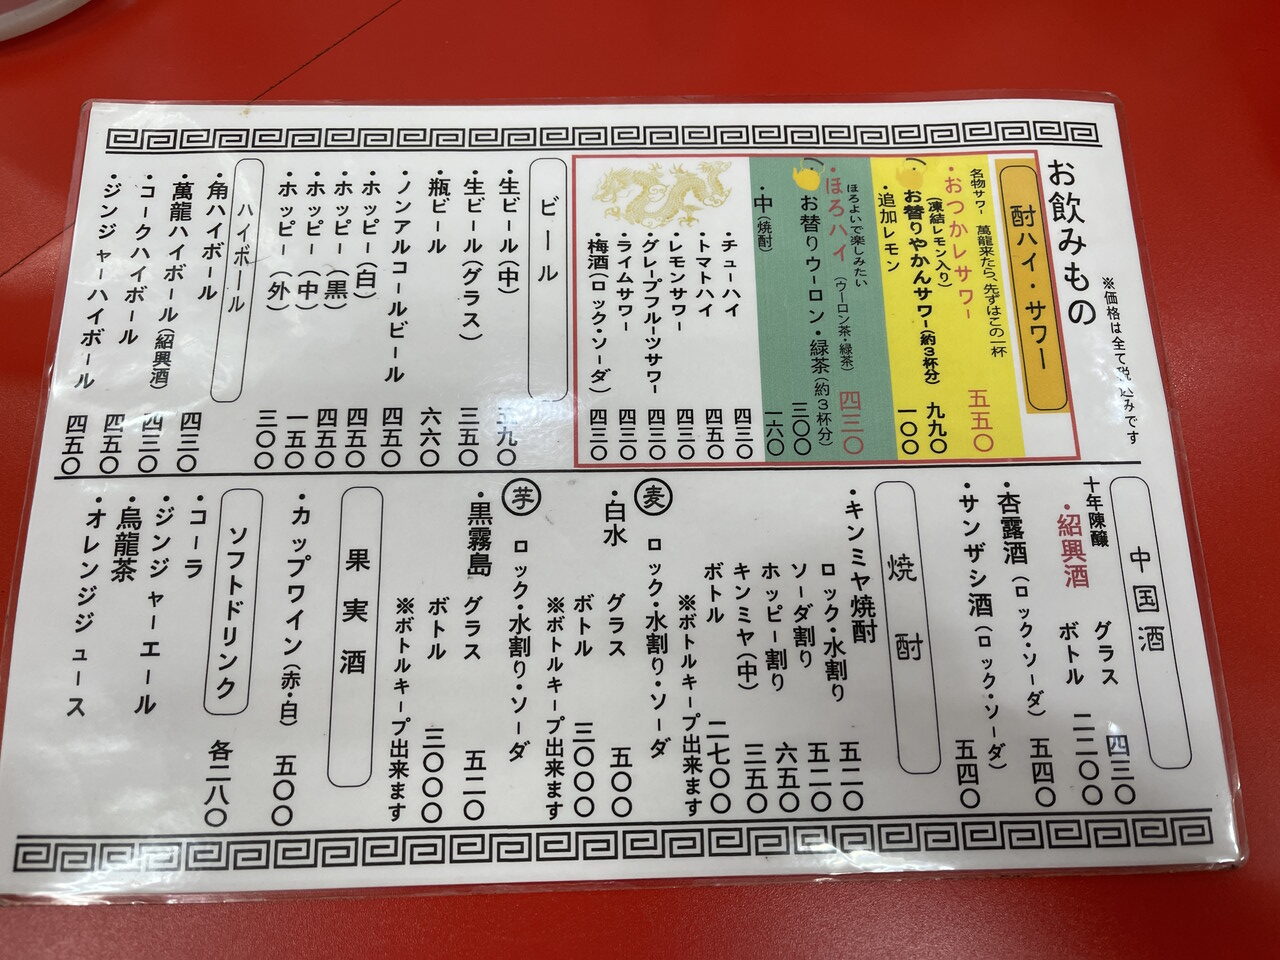 お飲みもの
※価格は全て税込みです
酎ハイ・サワー
名物サワー 萬龍来たら、先ずはこの一杯
・おつかレサワー 五五〇
(凍結レモン入り)
お替りやかんサワー(約3杯分) 九九〇
・追加レモン 一〇〇
ほろよいで楽しみたい
・ほろハイ (ウーロン茶・緑茶) 四三〇
お替りウーロン・緑茶(約3杯分) 三〇〇
・中(焼酎) 一六〇
・チューハイ 四三〇
・トマトハイ 四五〇
・レモンサワー 四三〇
・グレープフルーツサワー 四三〇
・ライムサワー 四三〇
・梅酒(ロック・ソーダ) 四三〇
ビール
・生ビール(中) 五九〇
・生ビール(グラス) 三五〇
・瓶ビール 六六〇
・ノンアルコールビール 四五〇
・ホッピー(白) 四五〇
・ホッピー(黒) 四五〇
・ホッピー(中) 一五〇
・ホッピー(外) 三〇〇
ハイボール
・角ハイボール 四三〇
・萬龍ハイボール(紹興酒) 四三〇
・コークハイボール 四五〇
・ジンジャーハイボール 四五〇
中国酒
十年陳醸
・紹興酒 グラス 四三〇
ボトル 二二〇〇
・杏露酒(ロック・ソーダ) 五四〇
・サンザシ酒(ロック・ソーダ) 五四〇
焼酎
・キンミヤ焼酎
ロック・水割り 五二〇
ソーダ割り 五二〇
ホッピー割り 六五〇
キンミヤ(中) 三五〇
ボトル 二七〇〇
※ボトルキープ出来ます
麦 ロック・水割り・ソーダ
・白水 グラス 五〇〇
ボトル 三〇〇〇
※ボトルキープ出来ます
芋 ロック・水割り・ソーダ
・黒霧島 グラス 五二〇
ボトル 三〇〇〇
※ボトルキープ出来ます
果実酒
・カップワイン(赤・白) 五〇〇
ソフトドリンク 各二八〇
・コーラ
・ジンジャーエール
・烏龍茶
・オレンジジュース